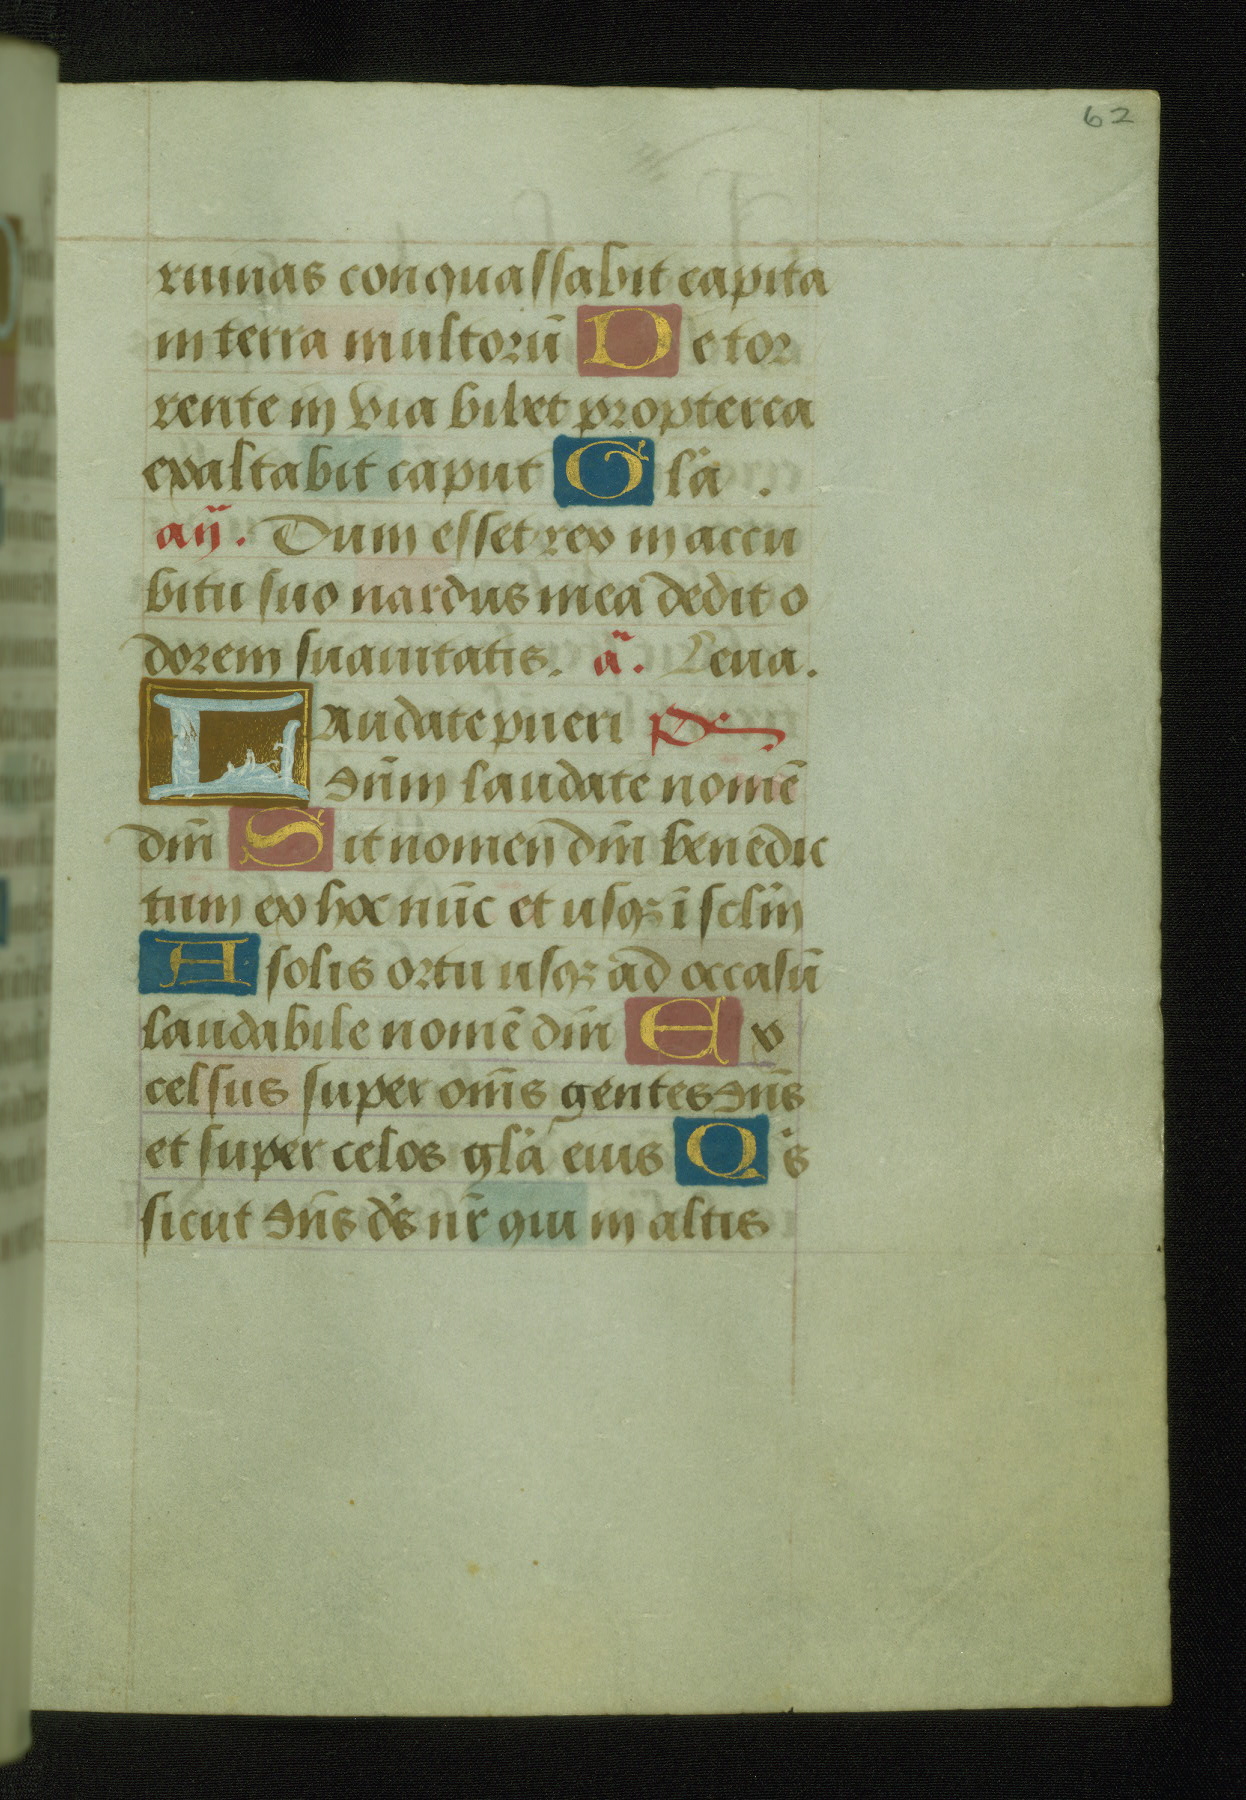 62
ruinas conquassabit capita
in terra multorū De tor
rente in via bibet propterea
exaltabit caput Glã .
añ. Dum esset rex in accu
bitu suo nardus mea dedit o
dorem suauitatis. ã. Leua.
Laudate pueri Ps
dñm laudate nomē
dm̄ Sit nomen dm̄ benedic
tum ex hoc nūc et usqꝫ ī sclm̄
A solis ortu usqꝫ ad occasū
laudabile nomē dm̄ Ex
celsus super om̄s gentes dñs
et super celos glã eius Qis
sicut dñs ds nr̄ qui in altis